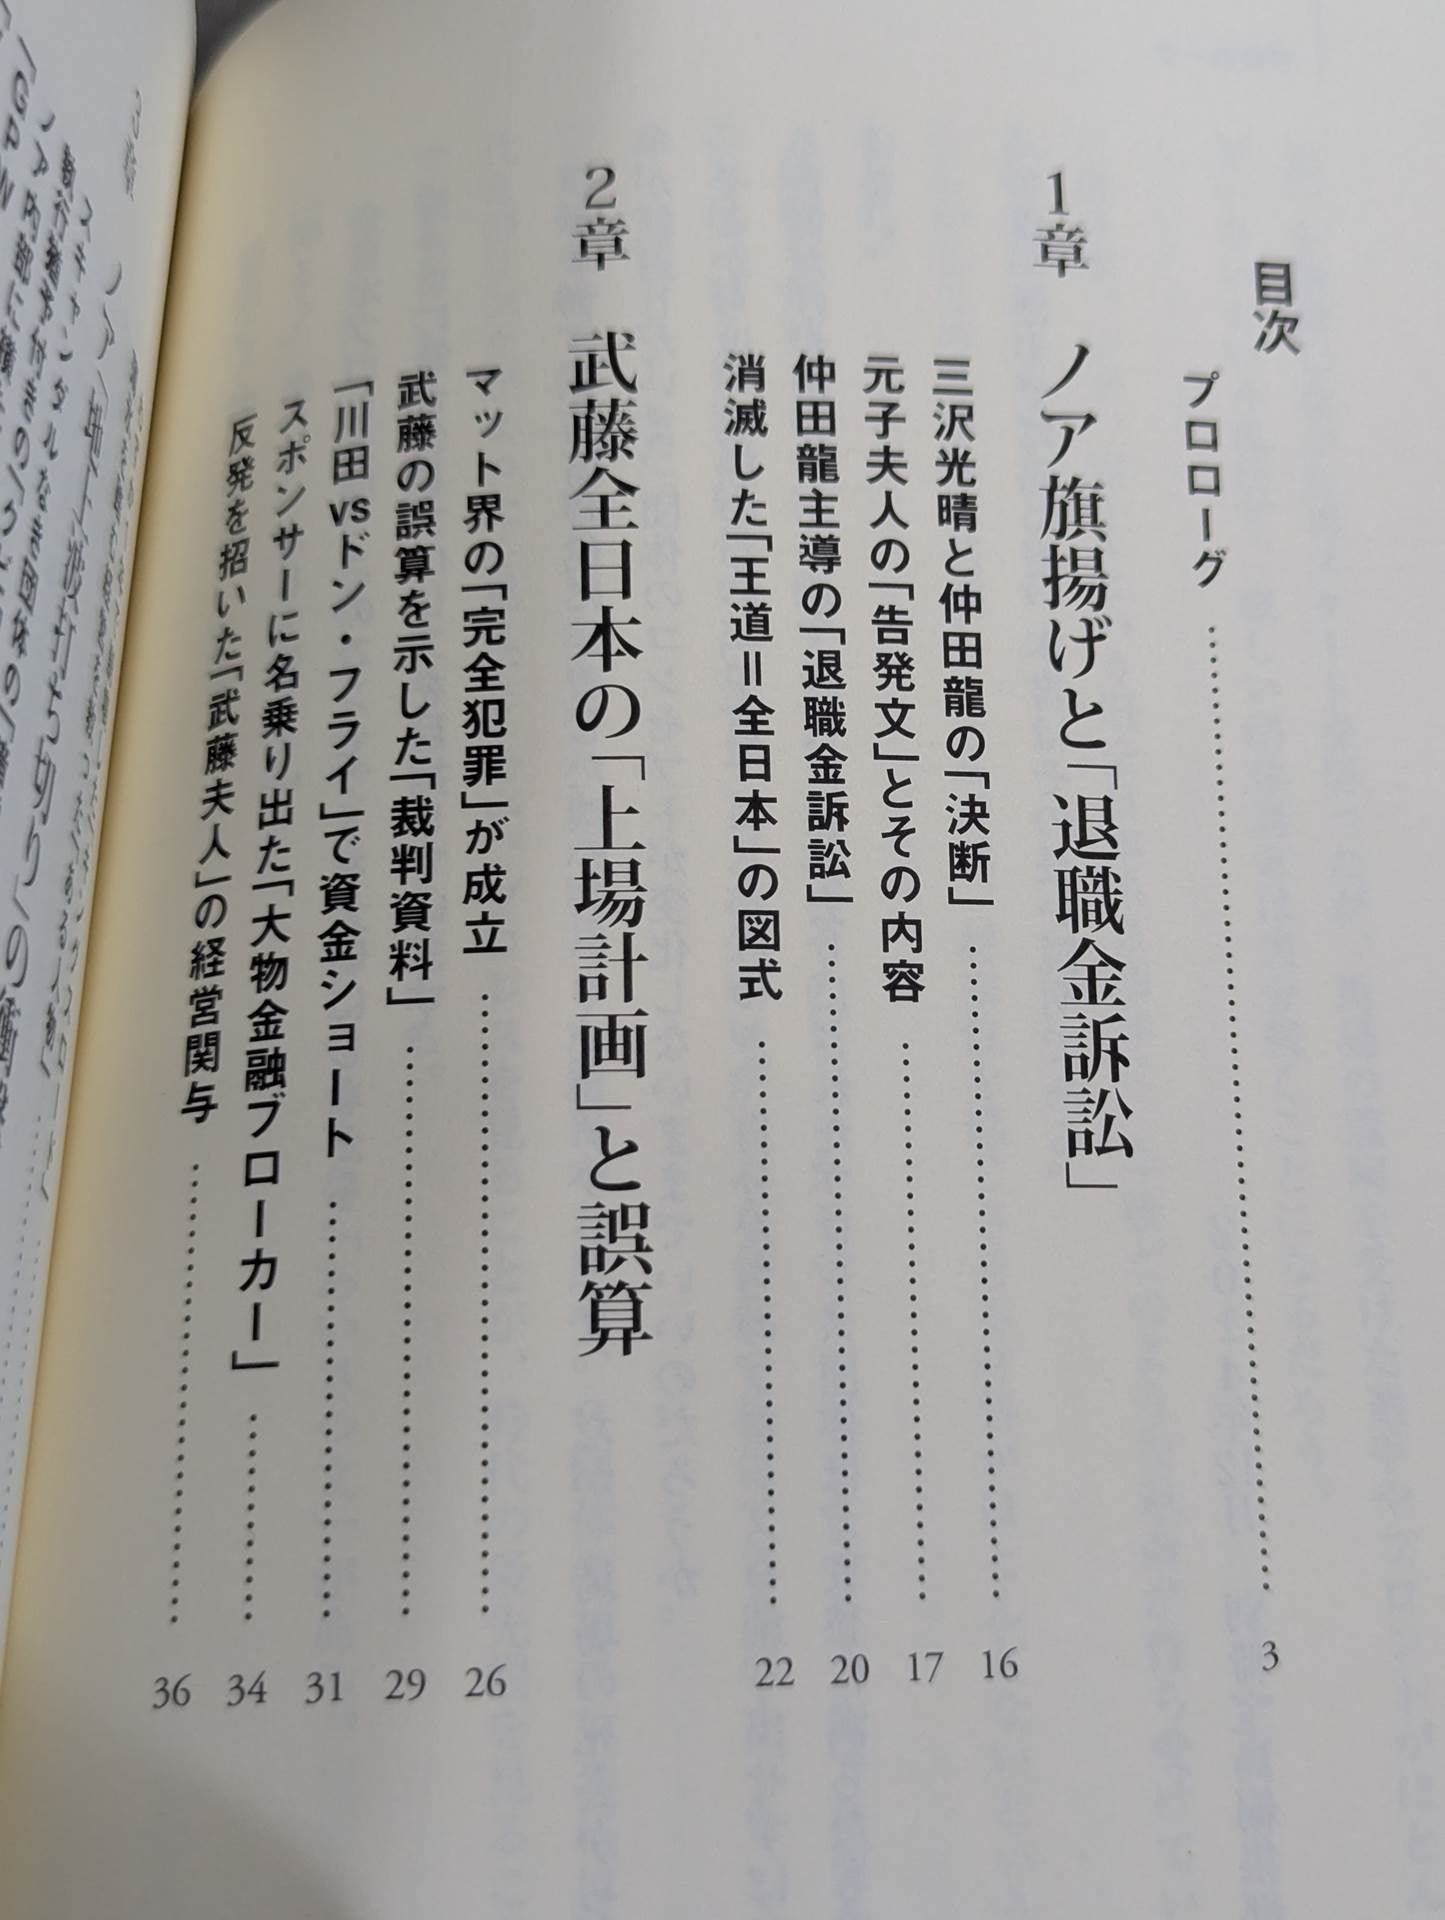 目次
プロローグ 3
1章 ノア旗揚げと「退職金訴訟」
三沢光晴と仲田龍の「決断」 16
元子夫人の「告発文」とその内容 17
仲田龍主導の「退職金訴訟」 20
消滅した「王道＝全日本」の図式 22
2章 武藤全日本の「上場計画」と誤算
マット界の「完全犯罪」が成立 26
武藤の誤算を示した「裁判資料」 29
「川田vsドン・フライ」で資金ショート 31
スポンサーに名乗り出た「大物金融ブローカー」 34
反発を招いた「武藤夫人」の経営関与 36